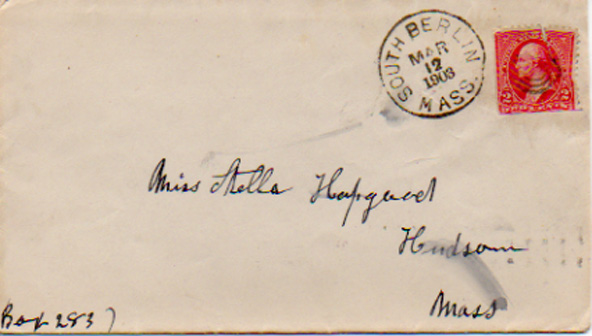 SOUTH BERLIN
MAR
12
1903
MASS.
2 2
Miss Stella Hapgood
Hudson
Mass
Box 283)